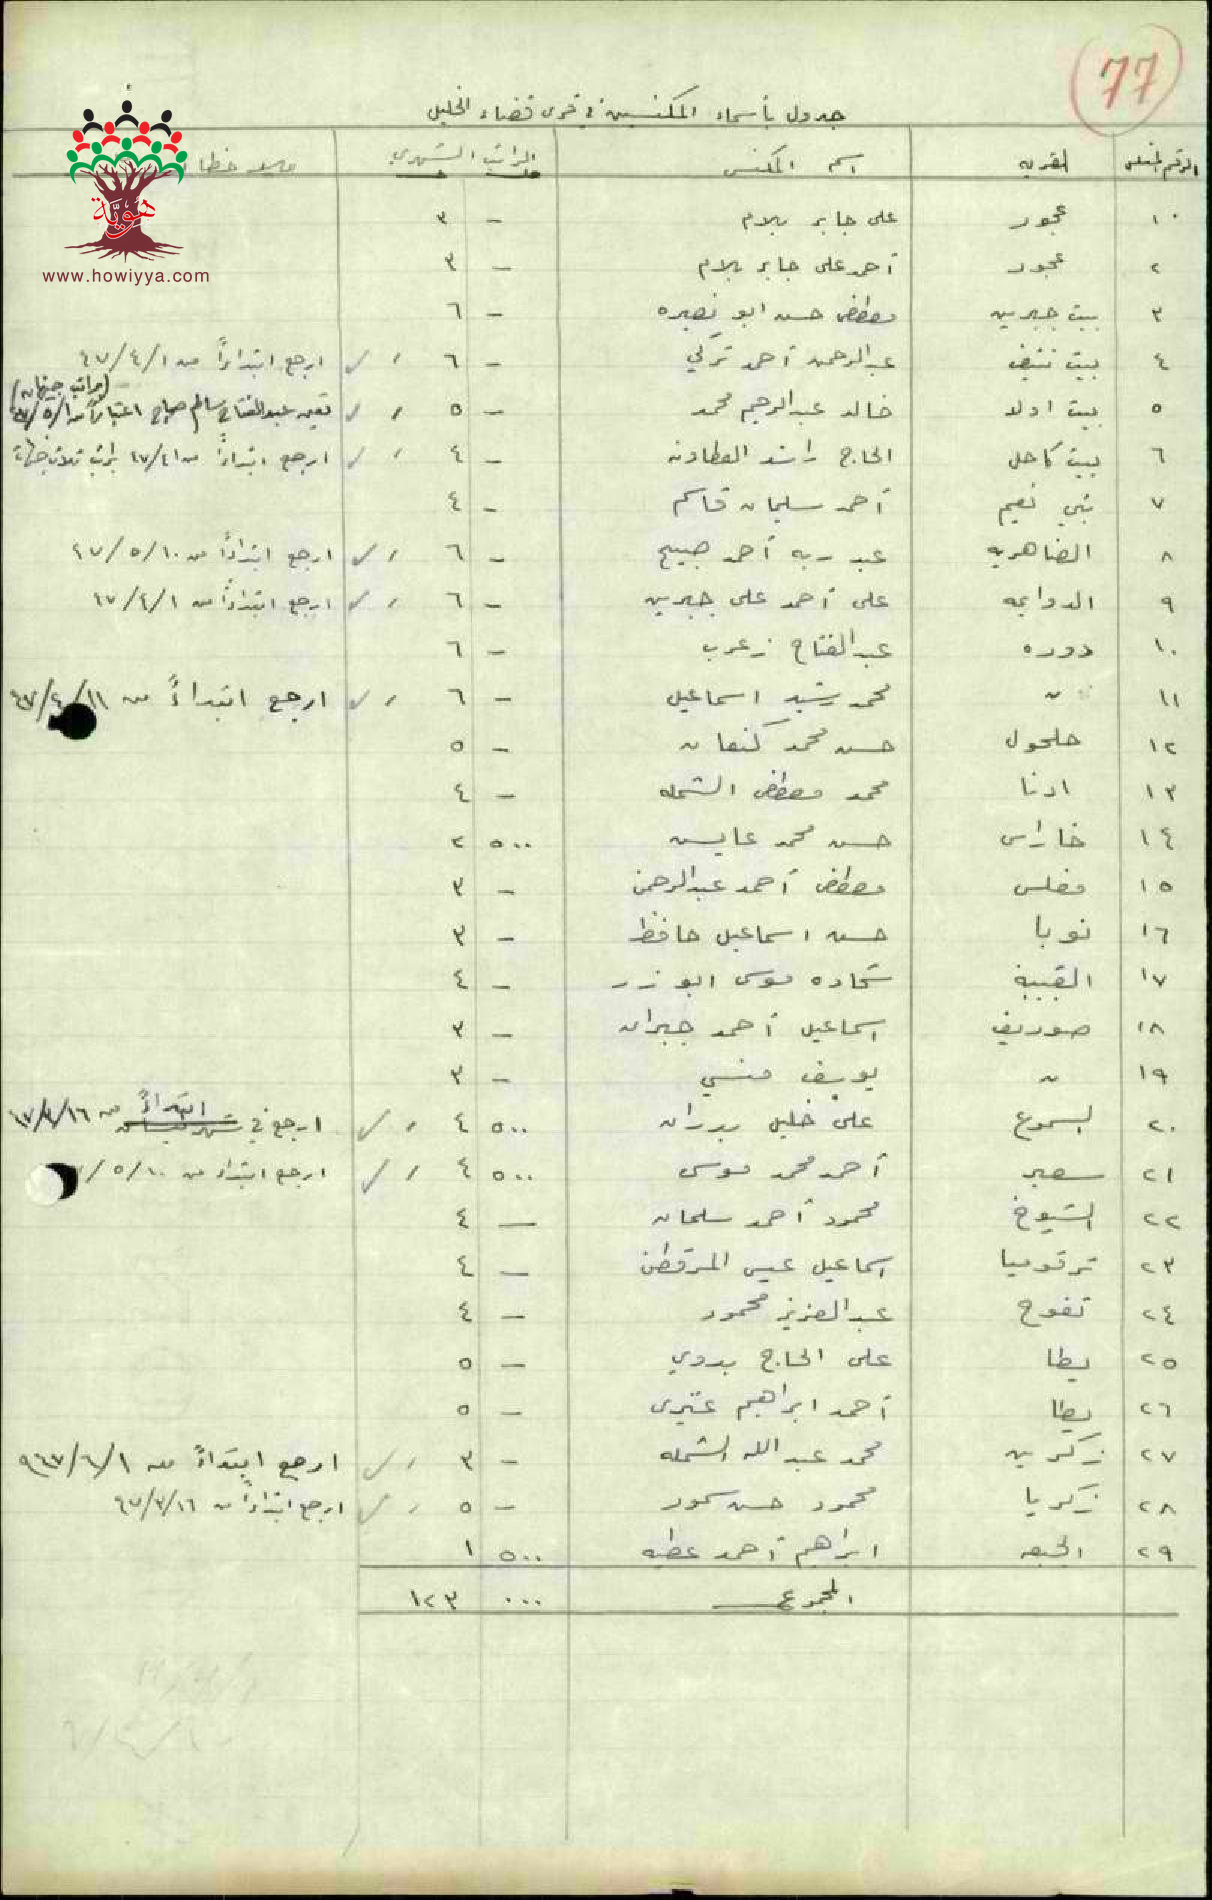 77
جدول بأسماء المكنسين في قرى قضاء الخليل
الرقم المتسلسل القرية اسم المكنس الراتب الشهري ملاحظات
هوية
www.howiyya.com
١٠ عجور علي جابر سلام - ٣
٢ عجور أحمد علي جابر سلام - ٣
٣ بيت جبرين مصطفى حسن ابو نصيره - ٦
٤ بيت نتيف عبد الرحمن أحمد تركي - ٦ ارجع ابتداءً من ٤٧/٤/١
(براتب جنيهان)
٥ بيت اولا خالد عبد الرحيم محمد - ٥ تعين عبد الفتاح سالم صباح اعتباراً من ٤٧/٥/١
٦ بيت كاحل الحاج راشد العطاونه - ٤ ارجع ابتداءً من براتب ثلاث جنيهات
٧ بني نعيم أحمد سليمان قاسم - ٤
٨ الضاهريه عبد ربه أحمد صبيح - ٦ ارجع ابتداءً من ٤٧/٥/١٠
٩ الدوايمه علي أحمد علي جبرين - ٦ ارجع ابتداءً من ٤٧/٤/١
١٠ دوره عبد الفتاح زعرب - ٦
١١ " محمد رشيد اسماعيل - ٦ ارجع ابتداءً من ٤٧/٤/١١
١٢ حلحول حسن محمد كنعان - ٥
١٣ ادنا محمد مصطفى الشمله - ٤
١٤ خاراس حسن محمد عايس ٥٠٠ ٢
١٥ مغلس مصطفى أحمد عبد الرحمن - ٣
١٦ نوبا حسن اسماعيل حافظ - ٣
١٧ القبيبة شحاده موسى ابو زر - ٤
١٨ صوريف اسماعيل أحمد جبران - ٣
١٩ " يوسف منسي - ٣
٢٠ السموع علي خليل بدران ٥٠٠ ٤ ارجع في ابتداءً من ٤٧/٤/١٦
٢١ سعير أحمد محمد موسى ٥٠٠ ٤ ارجع ابتداء من /٥/١٠
٢٢ الشيوخ محمود أحمد سلمان - ٤
٢٣ ترقوميا اسماعيل عيسى المرقطن - ٤
٢٤ تفوح عبد العزيز محمود - ٤
٢٥ يطا علي الحاج بدوي - ٥
٢٦ يطا أحمد ابراهيم - ٥
٢٧ زكرين محمد عبد الله الشمله - ٣ ارجع ابتداءً من ٩٤٧/٦/١
٢٨ زكريا محمود حسن حمود - ٥ ارجع ابتداءً من ٤٧/٣/١٦
٢٩ الجبعه ابراهيم أحمد عطيه ٥٠٠ ١
المجموع ٠٠٠ ١٢٣